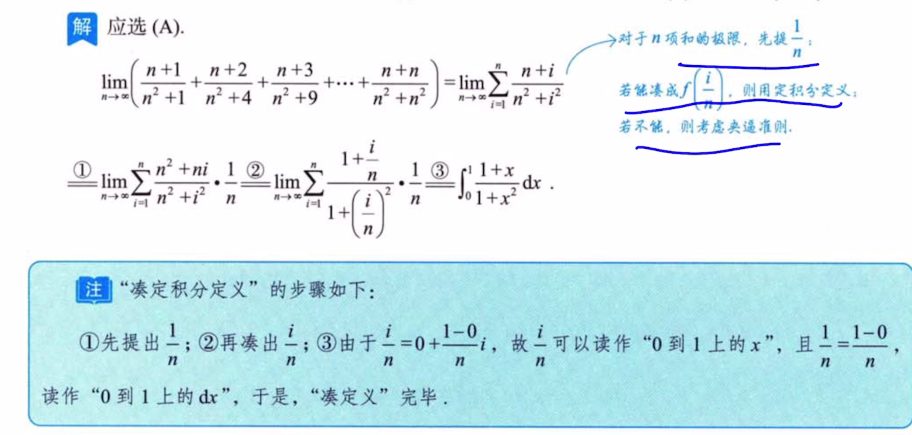 解 应选 (A).
对于 n 项和的极限, 先提 1/n;
lim_{n→∞}((n+1)/(n²+1) + (n+2)/(n²+4) + (n+3)/(n²+9) + ⋯ + (n+n)/(n²+n²)) = lim_{n→∞} ∑_{i=1}^{n} (n+i)/(n²+i²)
若能凑成 f(i/n), 则用定积分定义;
若不能, 则考虑夹逼准则.
①= lim_{n→∞} ∑_{i=1}^{n} (n²+ni)/(n²+i²) · 1/n ②= lim_{n→∞} ∑_{i=1}^{n} (1+i/n)/(1+(i/n)²) · 1/n ③= ∫₀¹ (1+x)/(1+x²) dx .
注 “凑定积分定义” 的步骤如下:
①先提出 1/n; ②再凑出 i/n; ③由于 i/n = 0 + (1−0)/n i, 故 i/n 可以读作 “0 到 1 上的 x”, 且 1/n = (1−0)/n,
读作 “0 到 1 上的 dx”, 于是, “凑定义” 完毕.